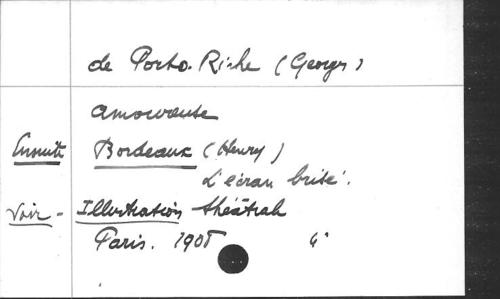 de Porto-Riche (Georges)
amoureuse
Ensuite Bordeaux (Henry)
L'écran brisé.
Voir - Illustration théâtrale
Paris. 1908 4°